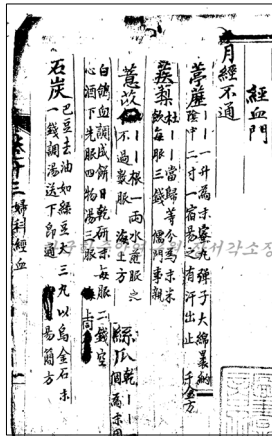 經血門
月經不通
葶藶 ｜｜一升為末蜜丸彈子大綿裹納
陰中二寸一宿易之有汗出止 千金方
蒺梨 杜｜｜當歸等分為末米
飲每服三錢 儒門事親
薏苡 ｜｜根一兩水煎服之
不過數服 海上方
絲瓜 乾｜｜一
個為末用
白鴿血調成餅日乾研末每服二錢空
心酒下先服四物湯三服
石炭 巴豆去油如綠豆大三丸以烏金石末
一錢調湯送下即通 易簡方
婦科經血